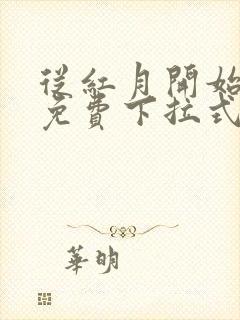 從紅月開始
免費下拉式
華明